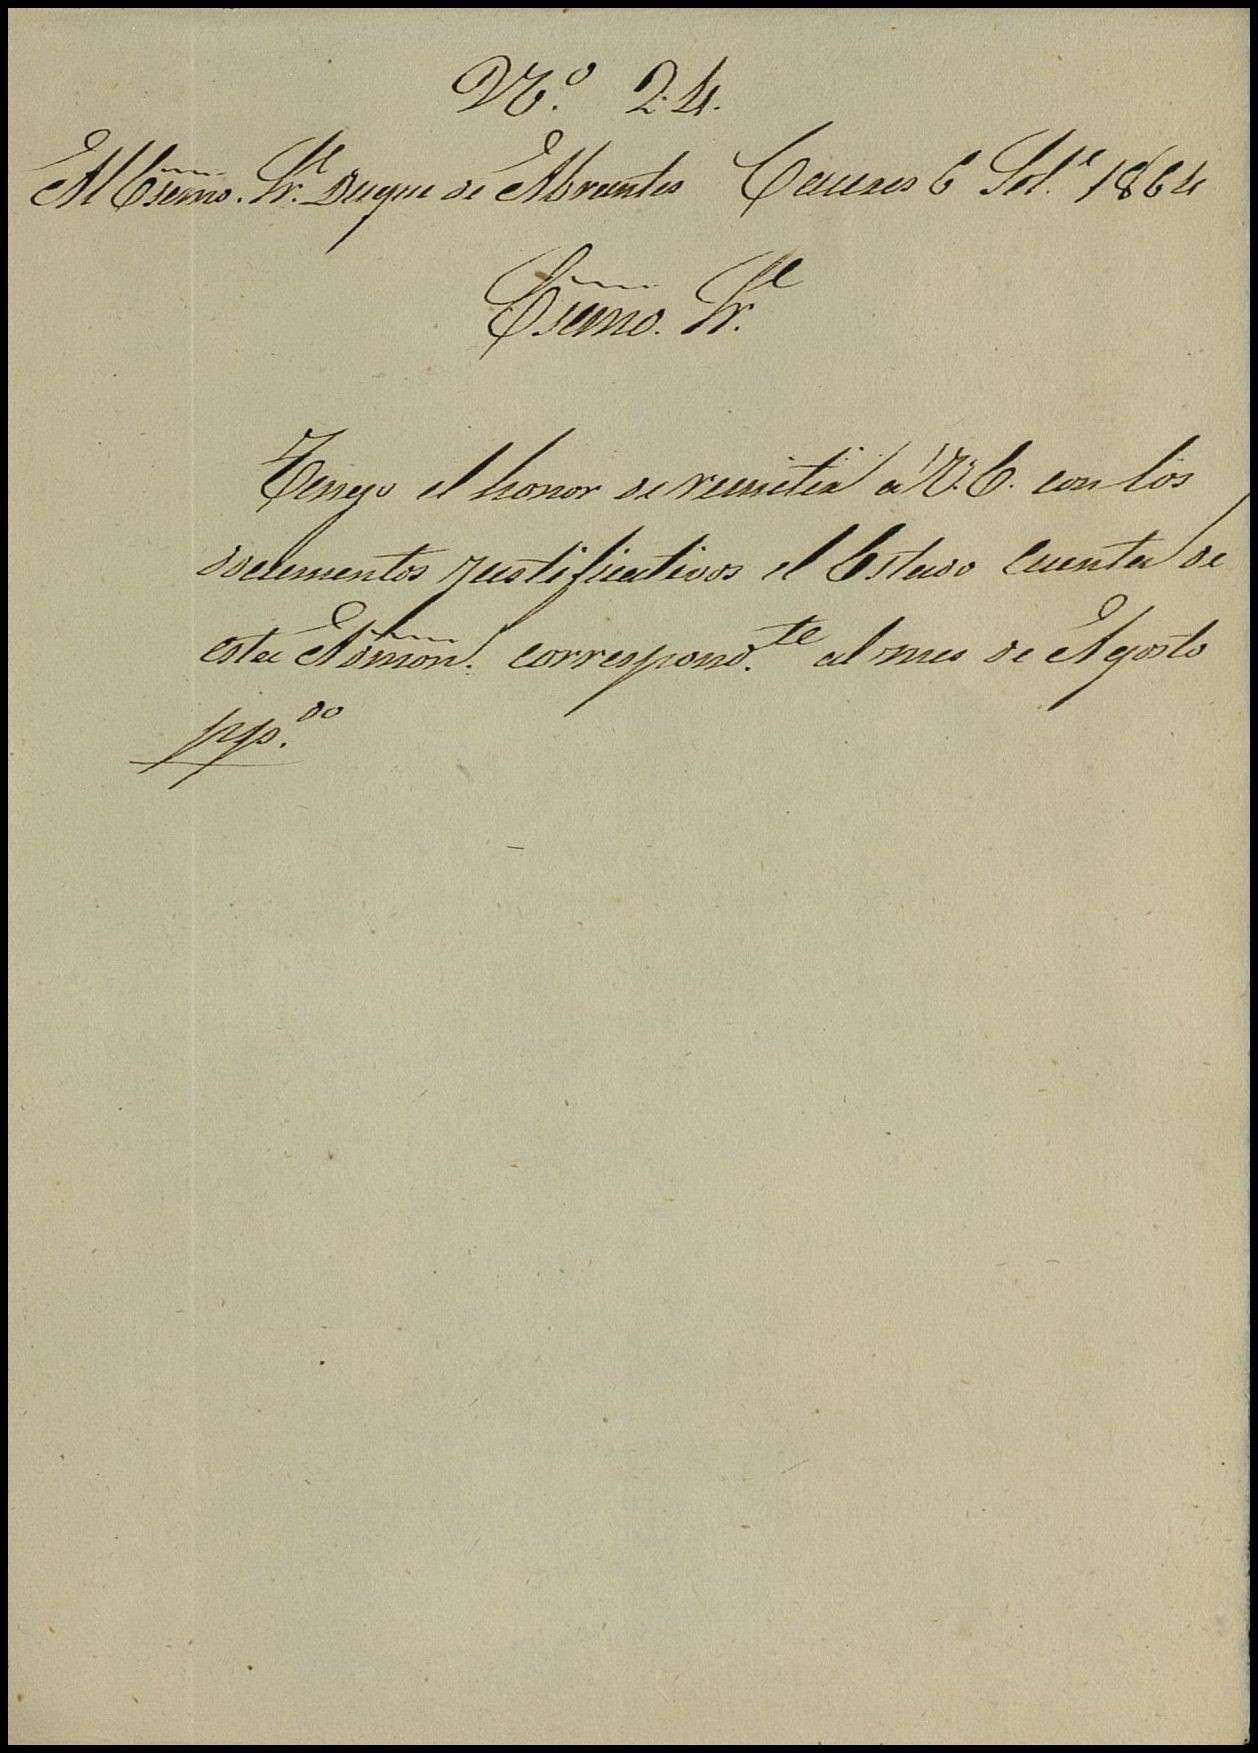 N.º 24.
Al Esmo. Sr. Duque de Abrantes Caceres 6 Set.e 1864
Esmo. Sr.
Tengo el honor de remitir a V.E. con los
documentos justificativos el Estado Cuenta de
esta Admon. correspond.te al mes de Agosto
pp.do